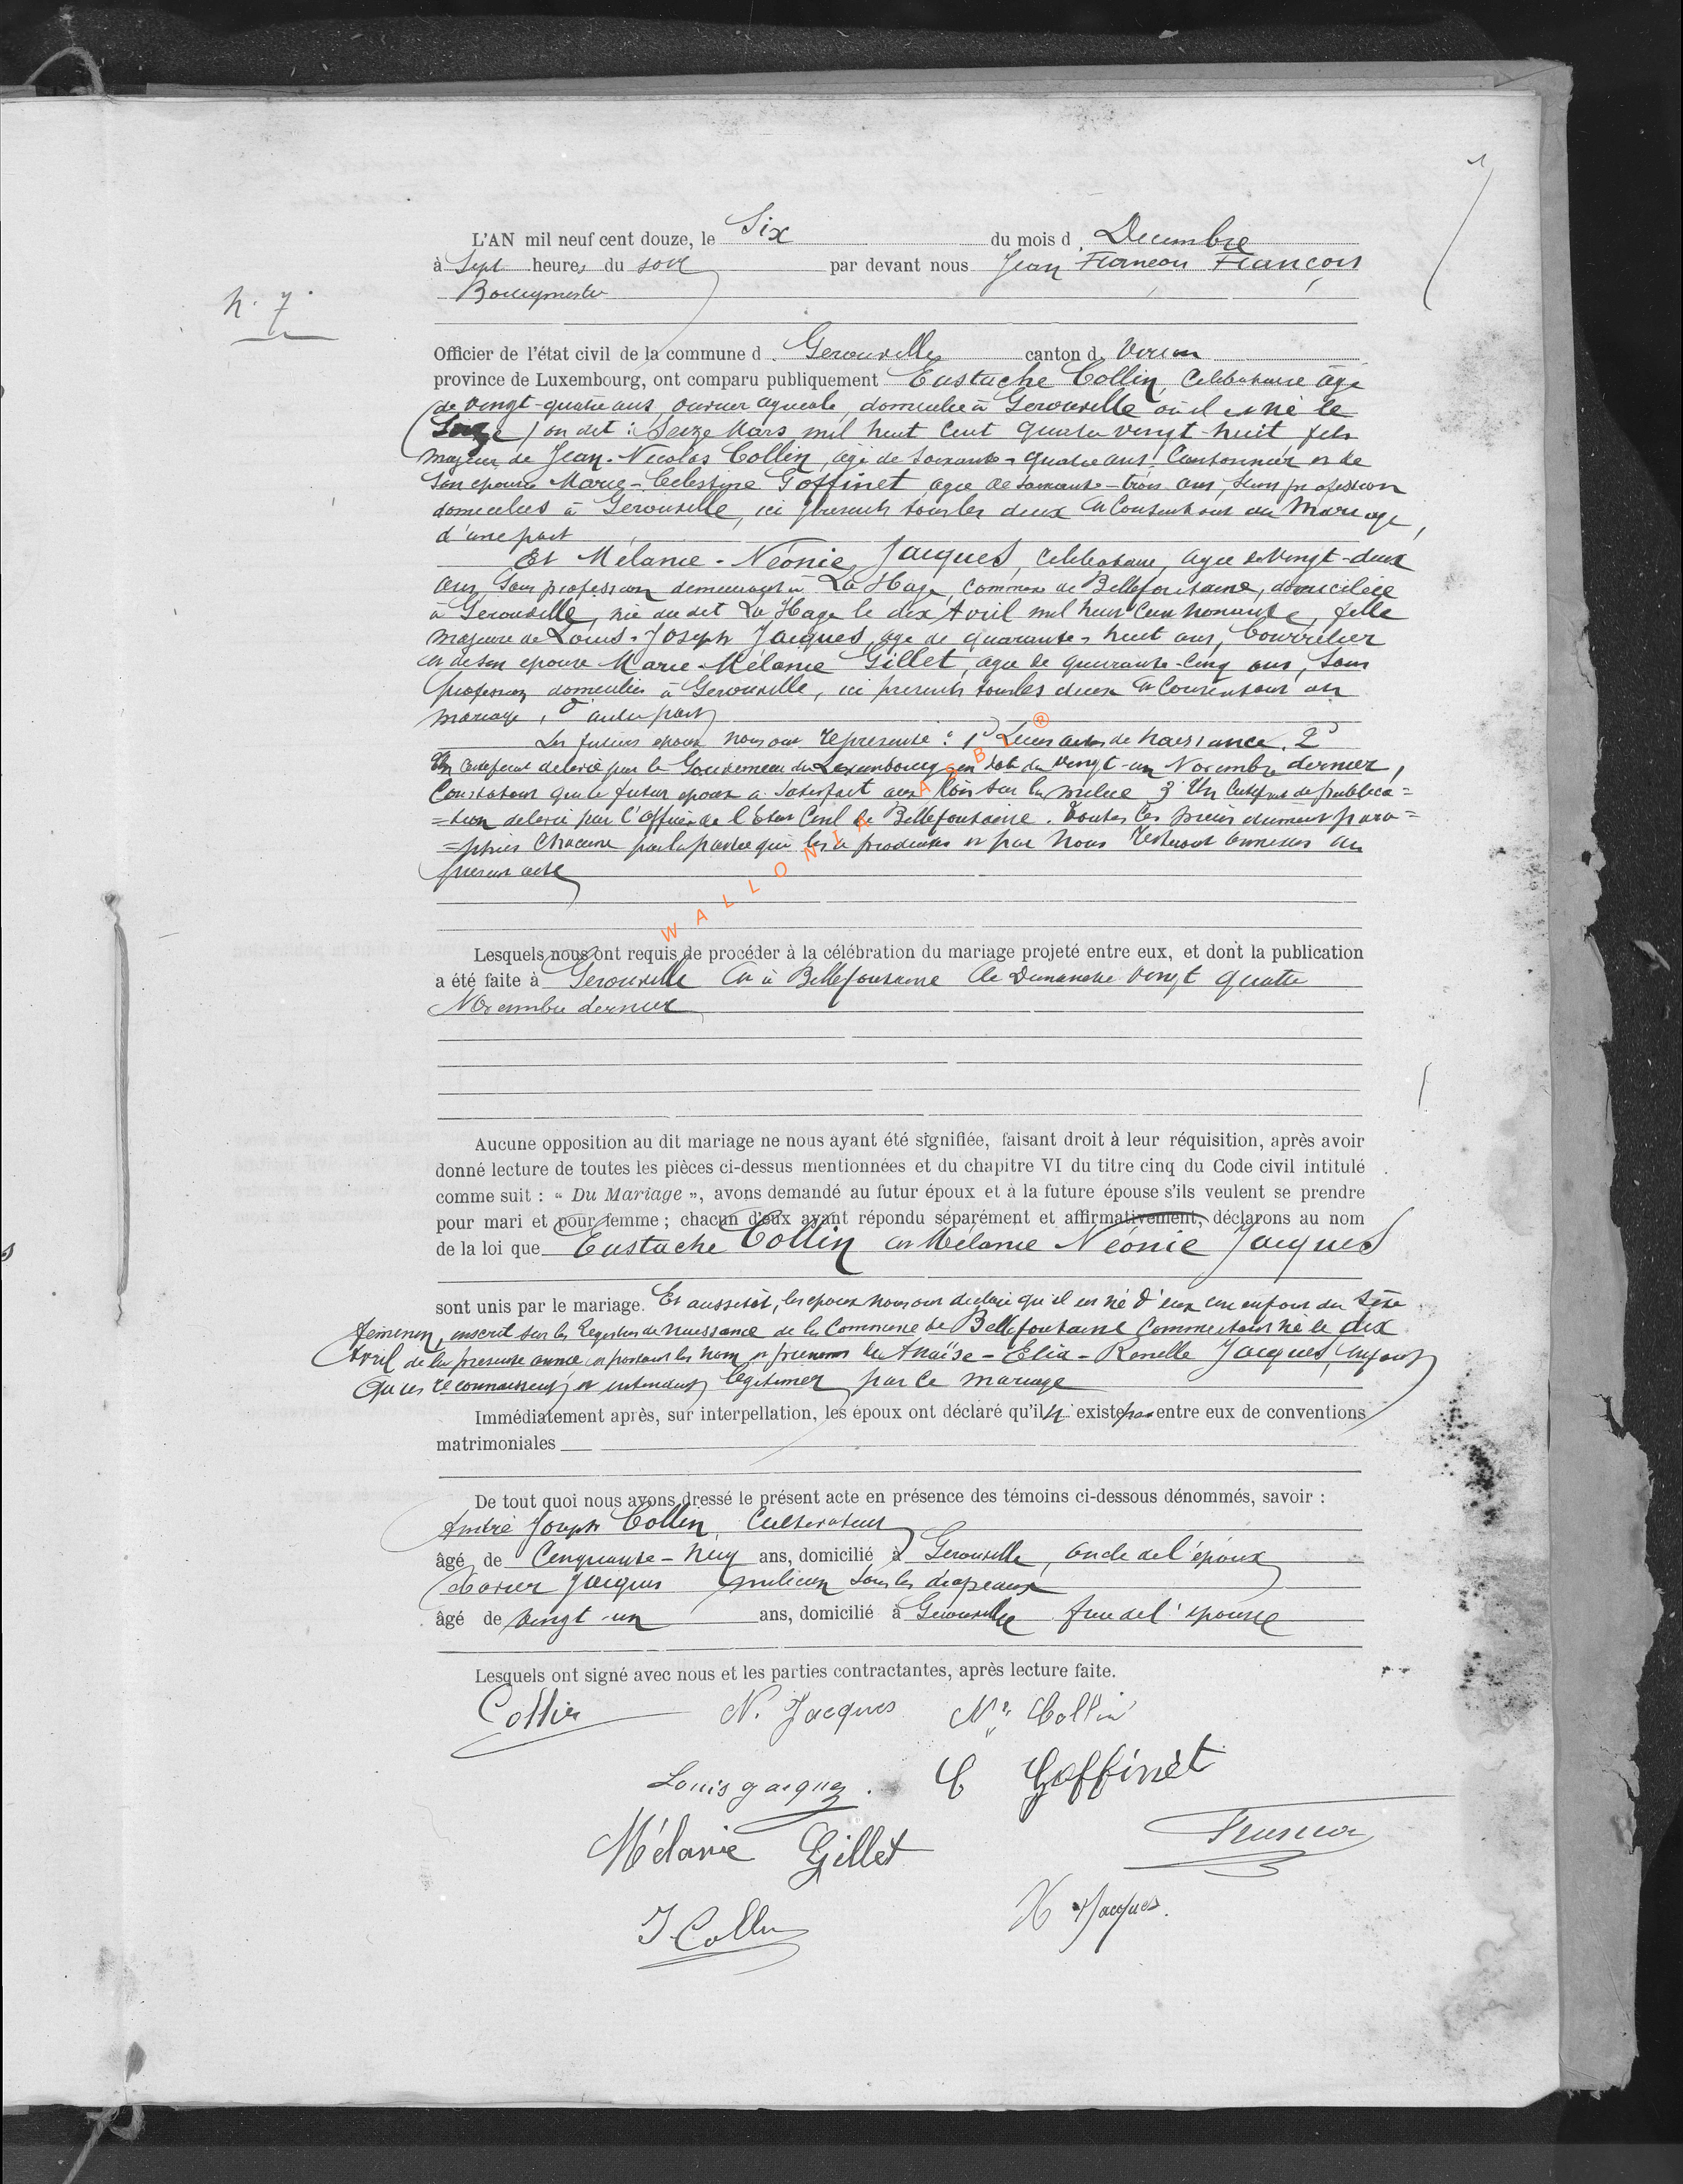 L'AN mil neuf cent douze, le Six du mois d. Decembre
à Sept heures du soir par devant nous Jean François François
Bourgmestre
N. 7.
Officier de l'état civil de la commune d. Gerouville canton d. Virton
province de Luxembourg, ont comparu publiquement Eustache Collin, Celibataire agé
de vingt-quatre ans, ouvrier agricole, domicilié à Gerouville où il est né le
on dit : Seize Mars mil huit Cent quatre vingt-huit fils
majeur de Jean-Nicolas Collin, agé de soixante-quatre ans, Cantonnier et de
son epouse Marie-Celestine Goffinet agée de soixante-trois ans, sans profession
domiciliés à Gerouville, ici presents tous les deux et Consentant au Mariage,
d'une part
Et Mélanie-Néonie Jacques, Celibataire, agée de Vingt-deux
ans, Sans profession demeurant à La Hage, commune de Bellefontaine, domiciliée
à Gerouville, née au dit La Hage le dix Avril mil huit Cent nonante, fille
majeure de Louis-Joseph Jacques, agé de quarante-huit ans, bourrelier
et de son epouse Marie-Mélanie Gillet, agée de quarante-cinq ans, sans
profession domiciliés à Gerouville, ici presents tous les deux et Consentant au
mariage, d'autre part
Les futurs epoux nous ont représenté : 1° Leurs actes de Naissance. 2°
Un Certificat delivré par le Gouverneur du Luxembourg en date du Vingt-un Novembre dernier,
Constatant que le futur epoux a satisfait aux lois sur la milice 3° Un Certificat de publica=
=tion delivré par l'Officier de l'Etat Civil de Bellefontaine. Toutes les pièces dûment para=
=phées Chacune par la partie qui les a produites et par Nous resteront annexées au
present acte
WALLONIA ASBL ®
Lesquels nous ont requis de procéder à la célébration du mariage projeté entre eux, et dont la publication
a été faite à Gerouville et à Bellefontaine le Dimanche vingt quatre
Novembre dernier
Aucune opposition au dit mariage ne nous ayant été signifiée, faisant droit à leur réquisition, après avoir
donné lecture de toutes les pièces ci-dessus mentionnées et du chapitre VI du titre cinq du Code civil intitulé
comme suit : « Du Mariage », avons demandé au futur époux et à la future épouse s'ils veulent se prendre
pour mari et pour femme ; chacun d'eux ayant répondu séparément et affirmativement, déclarons au nom
de la loi que Eustache Collin et Mélanie Néonie Jacques
sont unis par le mariage. Et aussitôt, les epoux nous ont declaré qu'il est né d'eux un enfant du sexe
feminin, inscrit sur les Registres de naissance de la Commune de Bellefontaine comme étant né le dix
Avril de la presente année et portant les nom et prenoms de Anaïse-Elia-Renelle Jacques, enfant
qu'ils reconnaissent et entendent legitimer par ce mariage
Immédiatement après, sur interpellation, les époux ont déclaré qu'il n'existe pas entre eux de conventions
matrimoniales
De tout quoi nous avons dressé le présent acte en présence des témoins ci-dessous dénommés, savoir :
André Joseph Collin, Cultivateur
âgé de Cinquante-neuf ans, domicilié à Gerouville, oncle de l'époux
Xavier Jacques milicien sous les drapeaux
âgé de vingt-un ans, domicilié à Gerouville frère de l'epouse
Lesquels ont signé avec nous et les parties contractantes, après lecture faite.
Collin N. Jacques Nas Collin
Louis Jacques. C Goffinet
Mélanie Gillet François
J Collin X Jacques.